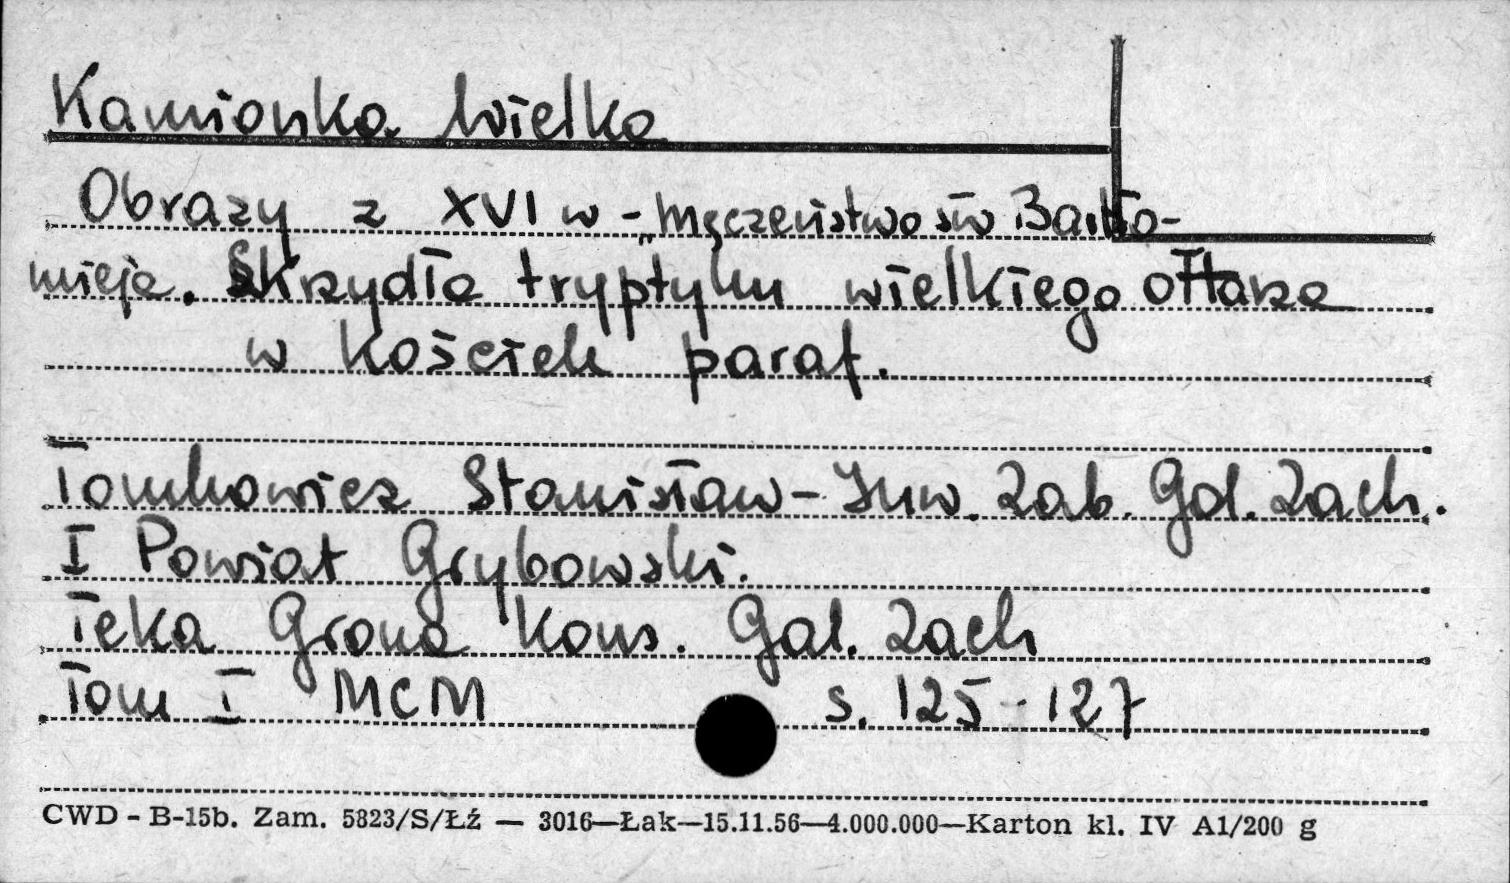 Kamionka Wielka
Obrazy z XVI w - „Męczeństwo św Bartło-
mieja. Skrzydła tryptyku wielkiego ołtarza
w kościele paraf.
Tomkowicz Stanisław - Inw. Zab. Gal. Zach.
I Powiat Grybowski.
Teka Grona Kons. Gal. Zach
Tom I MCM s. 125-127
CWD - B-15b. Zam. 5823/S/Łź — 3016—Łak—15.11.56—4.000.000—Karton kl. IV A1/200 g